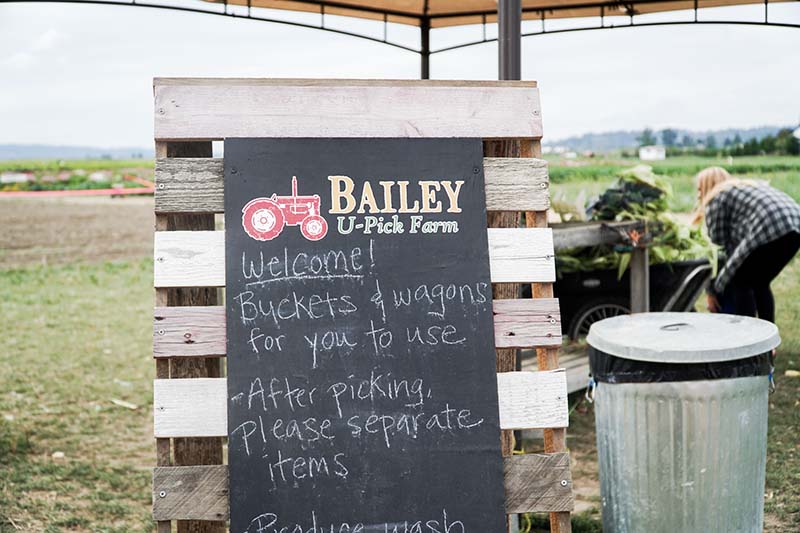 BAILEY
U-Pick Farm
Welcome!
Buckets & wagons
for you to use
-After picking,
please separate
items
Produce wash